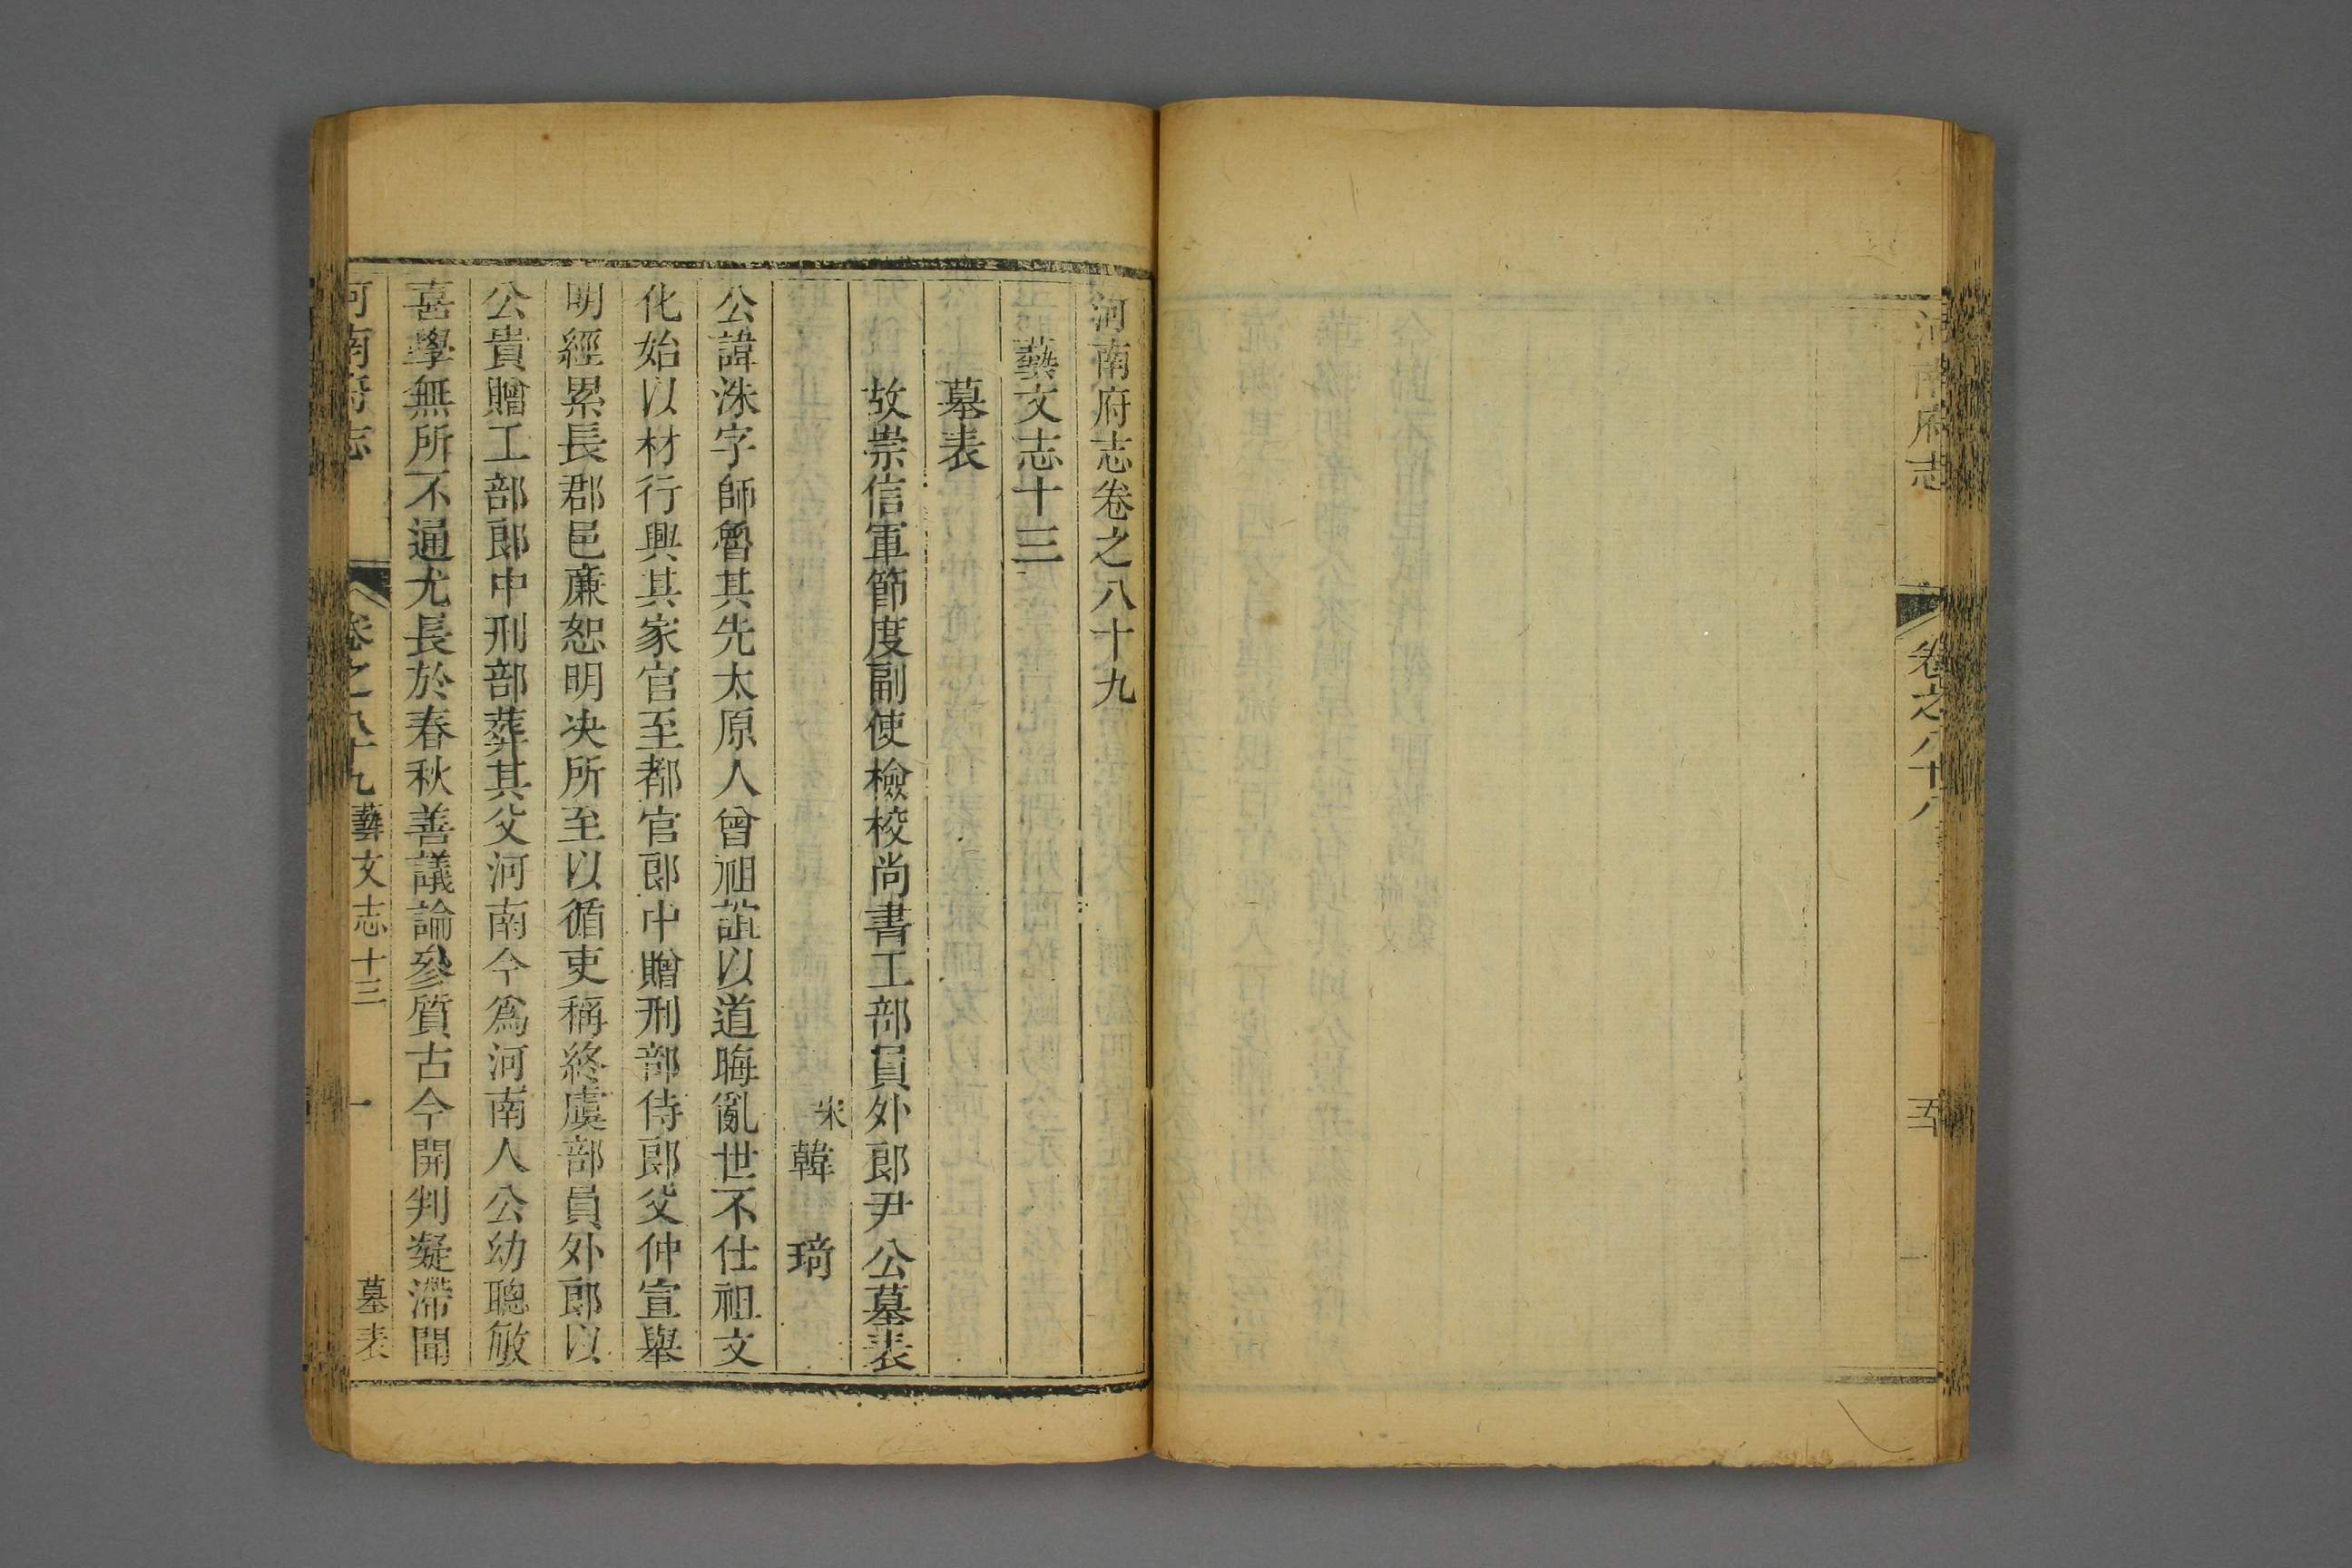 河南府志
卷之八十八
五十
河南府志卷之八十九
藝文志十三
墓表
故崇信軍節度副使檢校尚書工部員外郎尹公墓表
宋韓琦
公諱洙字師魯其先太原人曾祖誼以道晦亂世不仕祖文
化始以材行興其家官至都官郎中贈刑部侍郎父仲宣舉
明經累長郡邑廉恕明决所至以循吏稱終虞部員外郎以
公貴贈工部郎中刑部葬其父河南今爲河南人公幼聰敏
喜學無所不通尤長於春秋善議論參質古今開判凝滯聞
河南府志
卷之八十九
藝文志十三
一
墓表